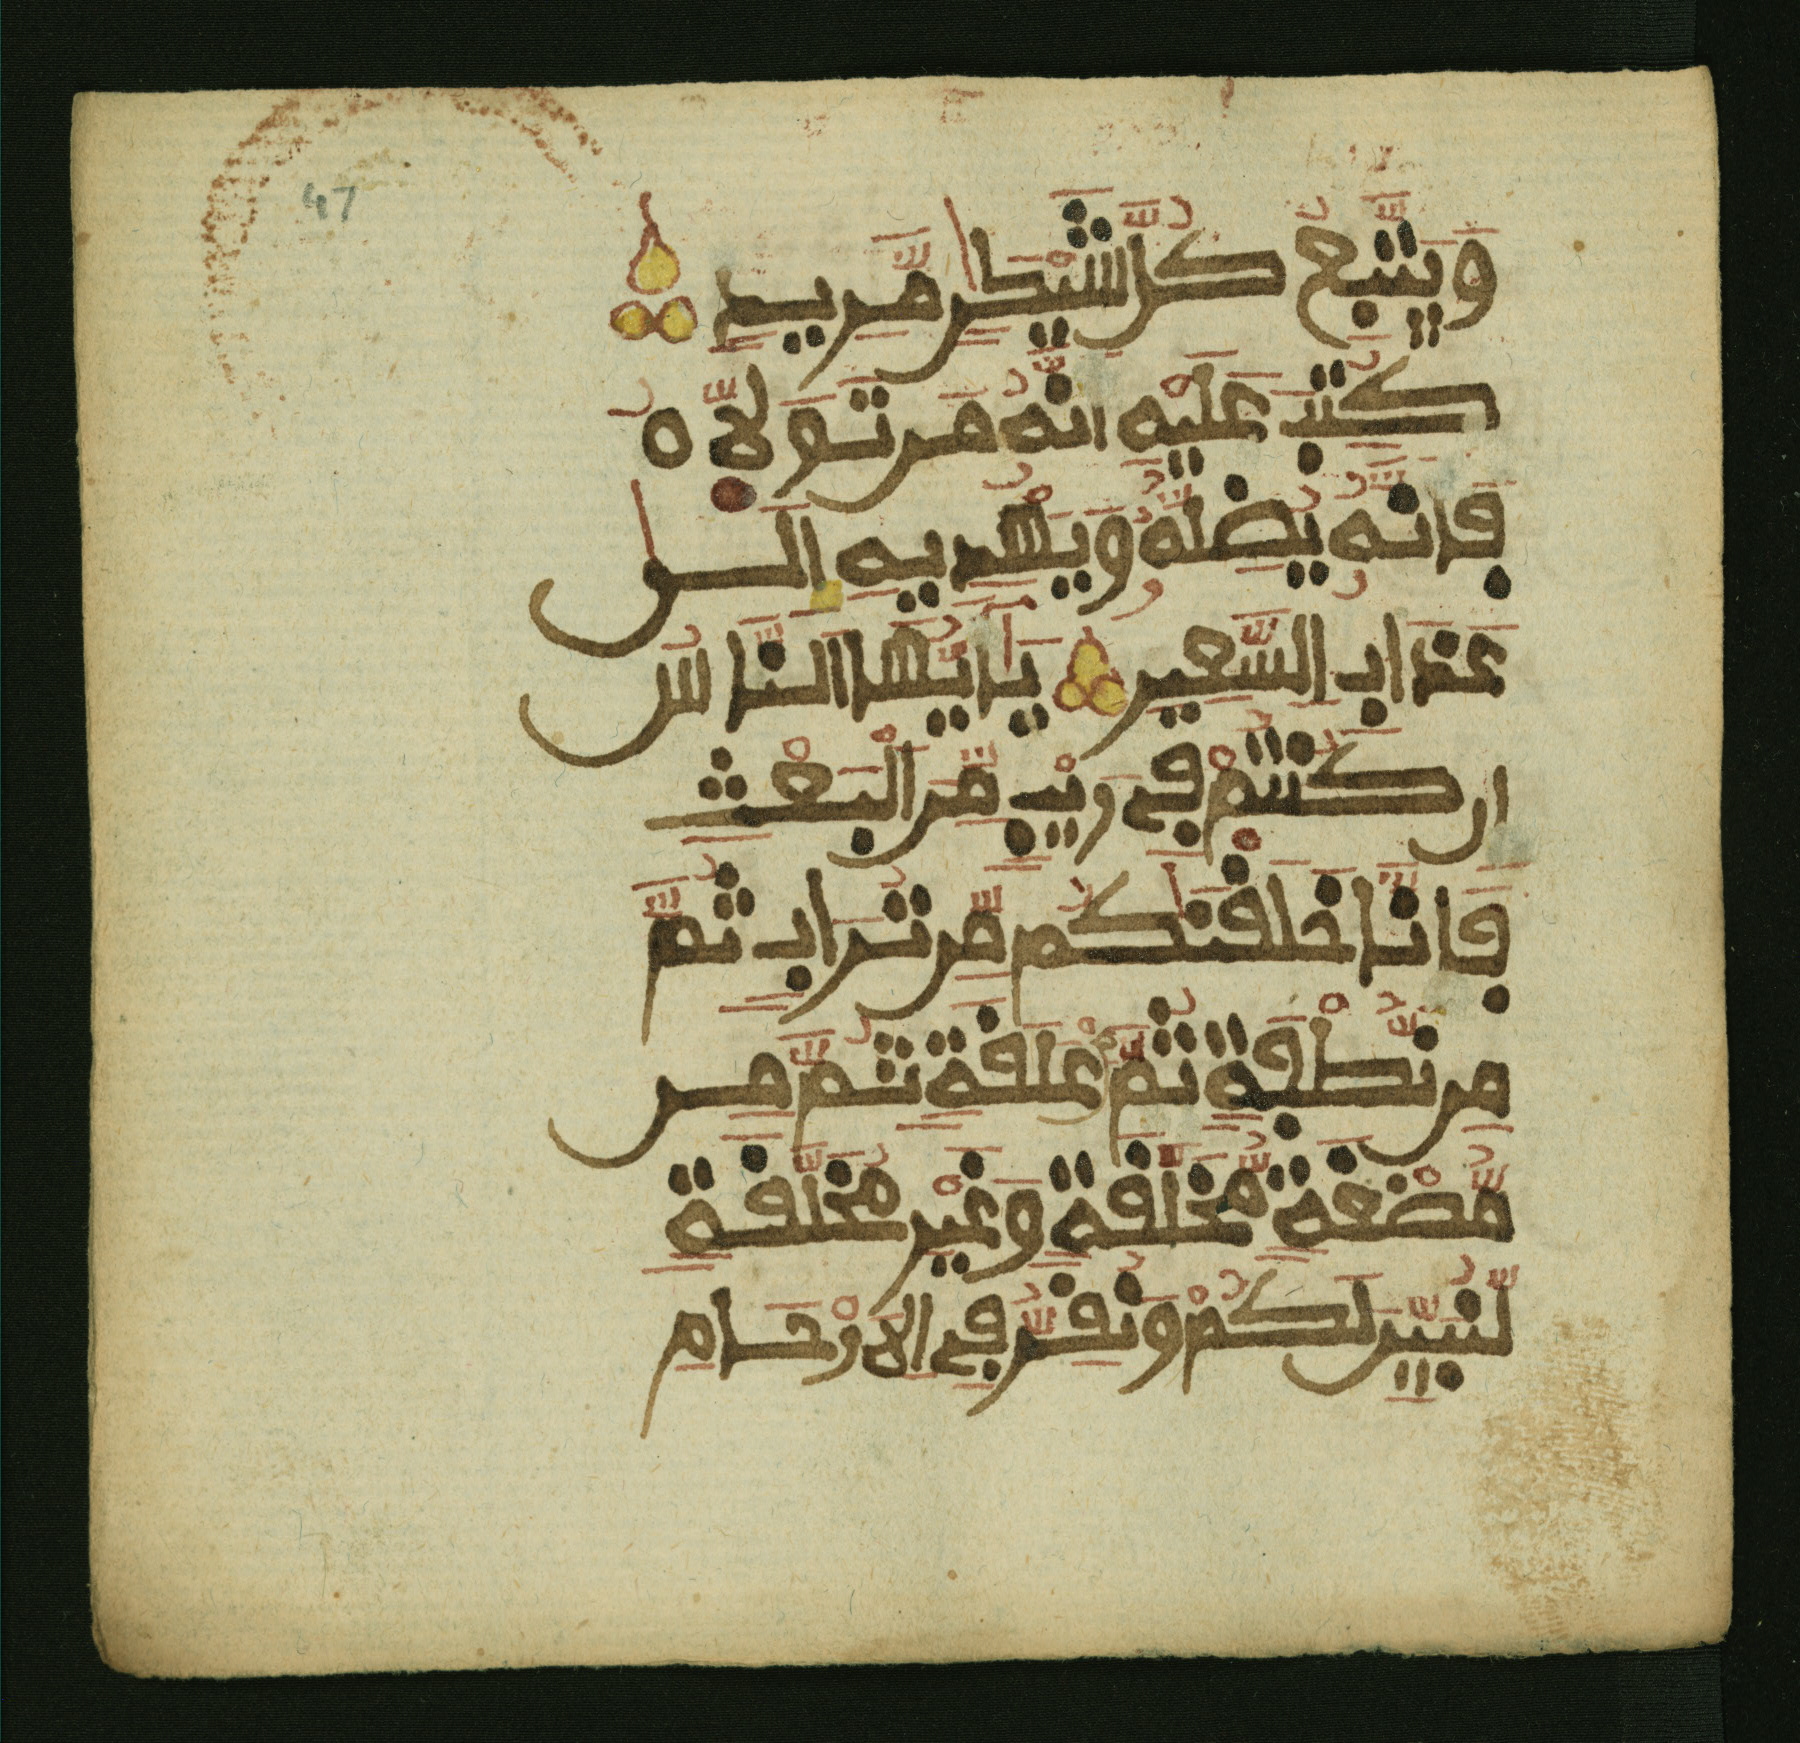 47
وَيَتَّبِعُ كُلَّ شَيْطَٰنٍ مَّرِيدٍ
كُتِبَ عَلَيْهِ أَنَّهُ مَن تَوَلَّاهُ
فَإِنَّهُ يُضِلُّهُ وَيَهْدِيهِ إِلَىٰ
عَذَابِ السَّعِيرِ يَٰأَيُّهَا النَّاسُ
إِن كُنتُمْ فِي رَيْبٍ مِّنَ الْبَعْثِ
فَإِنَّا خَلَقْنَٰكُم مِّن تُرَابٍ ثُمَّ
مِن نُّطْفَةٍ ثُمَّ مِنْ عَلَقَةٍ ثُمَّ مِن
مُّضْغَةٍ مُّخَلَّقَةٍ وَغَيْرِ مُخَلَّقَةٍ
لِّنُبَيِّنَ لَكُمْ وَنُقِرُّ فِي الْأَرْحَامِ